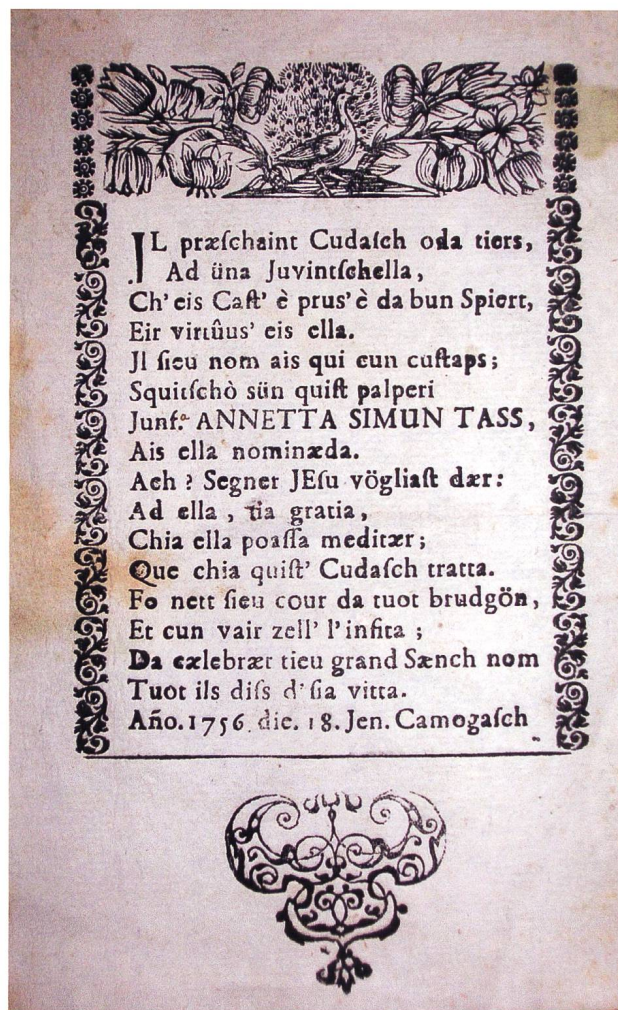 IL præſchaint Cudaſch oda tiers,
Ad üna Juvintſchella,
Ch' eis Caſt' è prus' è da bun Spiert,
Eir virtûus' eis ella.
Jl ſieu nom ais qui cun cuſtaps;
Squitſchò sün quiſt palperi
Junf.ª ANNETTA SIMUN TASS,
Ais ella nominæda.
Ach ? Segner JEſu vögliaſt dær:
Ad ella , tia gratia,
Chia ella poaſſa meditær;
Que chia quiſt' Cudaſch tratta.
Fo nett ſieu cour da tuot brudgön,
Et cun vair zell' l' infita ;
Da cælebrær tieu grand Sænch nom
Tuot ils diſs d' ſia vitta.
Año. 1756. die. 18. Jen. Camogaſch